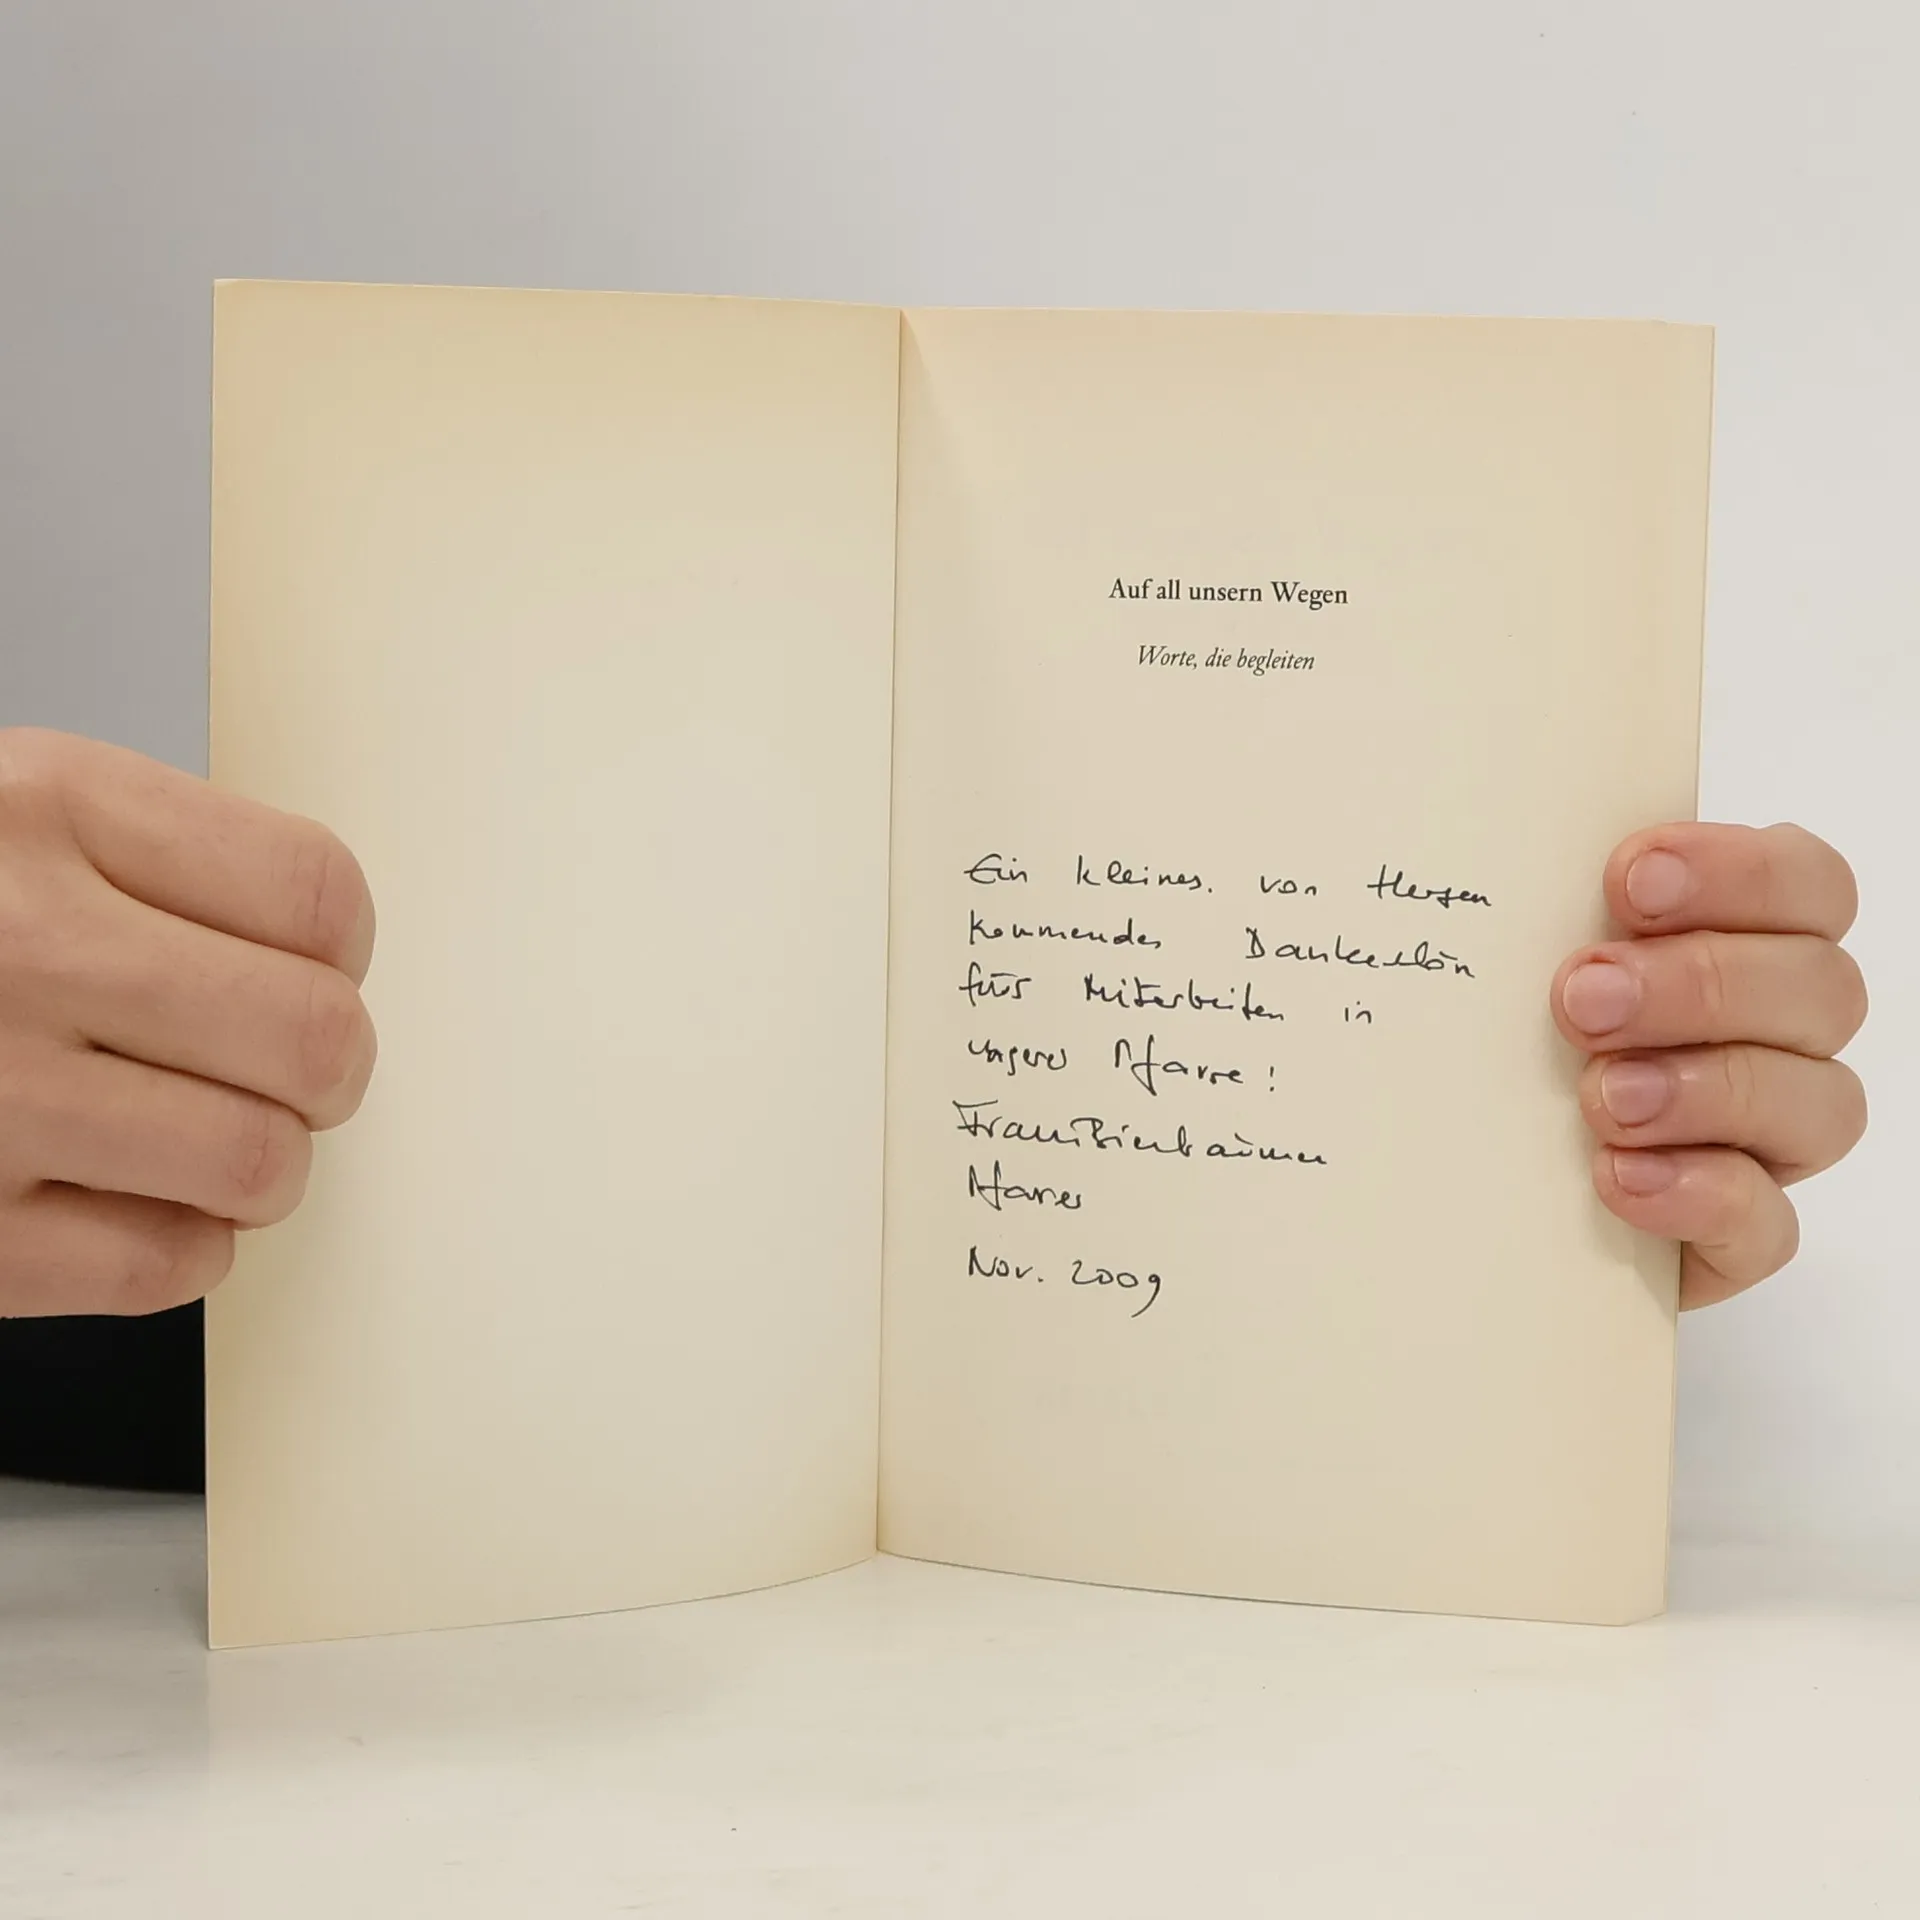 Auf all unsern Wegen
Worte, die begleiten
Ein kleines, von Herzen
kommendes Dankeschön
fürs Mitarbeiten in
unserer Pfarre!
Pfarrer
Nov. 2009